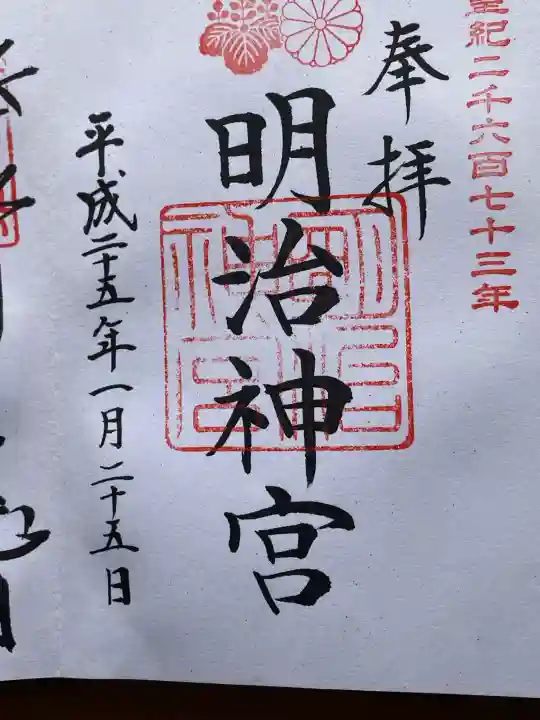 皇紀二千六百七十三年
奉拝
明治神宮
平成二十五年一月二十五日